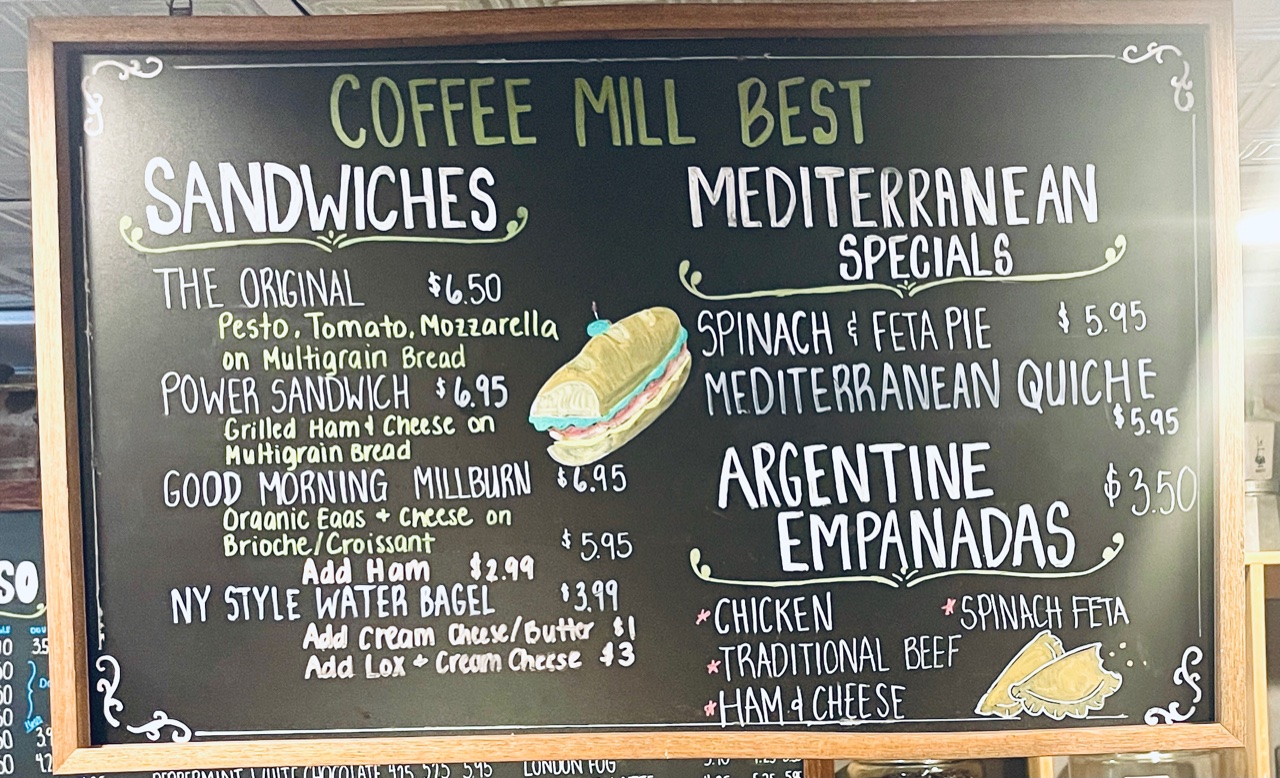 COFFEE MILL BEST
SANDWICHES
THE ORIGINAL $6.50
Pesto, Tomato, Mozzarella
on Multigrain Bread
POWER SANDWICH $6.95
Grilled Ham & Cheese on
Multigrain Bread
GOOD MORNING MILLBURN $6.95
Organic Eggs + Cheese on
Brioche/Croissant $5.95
Add Ham $2.99
NY STYLE WATER BAGEL $3.99
Add Cream Cheese/Butter $1
Add Lox + Cream Cheese $3
MEDITERRANEAN
SPECIALS
SPINACH & FETA PIE $5.95
MEDITERRANEAN QUICHE
$5.95
ARGENTINE $3.50
EMPANADAS
*CHICKEN *SPINACH FETA
*TRADITIONAL BEEF
*HAM & CHEESE
SO
PEPPERMINT WHITE CHOCOLATE 4.25 5.25 5.95
LONDON FOG